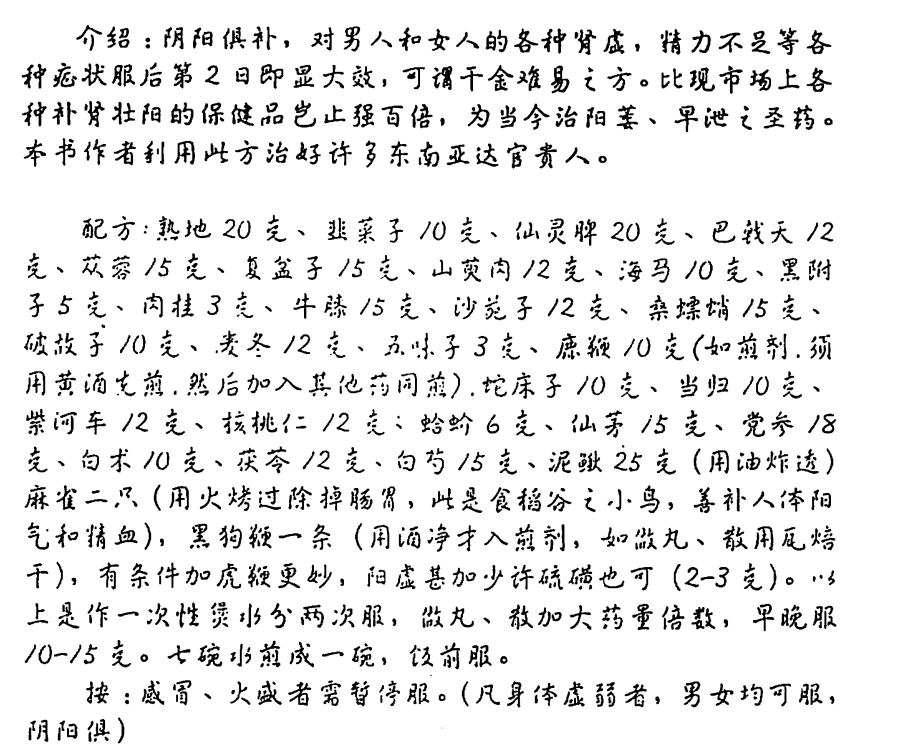 介绍：阴阳俱补，对男人和女人的各种肾虚，精力不足等各
种症状服后第2日即显大效，可谓千金难易之方。比现市场上各
种补肾壮阳的保健品岂止强百倍，为当今治阳萎、早泄之圣药。
本书作者利用此方治好许多东南亚达官贵人。
配方：熟地20克、韭菜子10克、仙灵脾20克、巴戟天12
克、苁蓉15克、复盆子15克、山萸肉12克、海马10克、黑附
子5克、肉桂3克、牛膝15克、沙苑子12克、桑螵蛸15克、
破故子10克、麦冬12克、五味子3克、鹿鞭10克(如煎剂.须
用黄酒先煎.然后加入其他药同煎).蛇床子10克、当归10克、
紫河车12克、核桃仁12克；蛤蚧6克、仙茅15克、党参18
克、白术10克、茯苓12克、白芍15克、泥鳅25克（用油炸透）
麻雀二只（用火烤过除掉肠胃，此是食稻谷之小鸟，善补人体阳
气和精血），黑狗鞭一条（用酒净才入煎剂，如做丸、散用瓦焙
干），有条件加虎鞭更妙，阳虚甚加少许硫磺也可（2-3克）。以
上是作一次性煲水分两次服，做丸、散加大药量倍数，早晚服
10-15克。七碗水煎成一碗，饭前服。
按：感冒、火盛者需暂停服。（凡身体虚弱者，男女均可服，
阴阳俱）